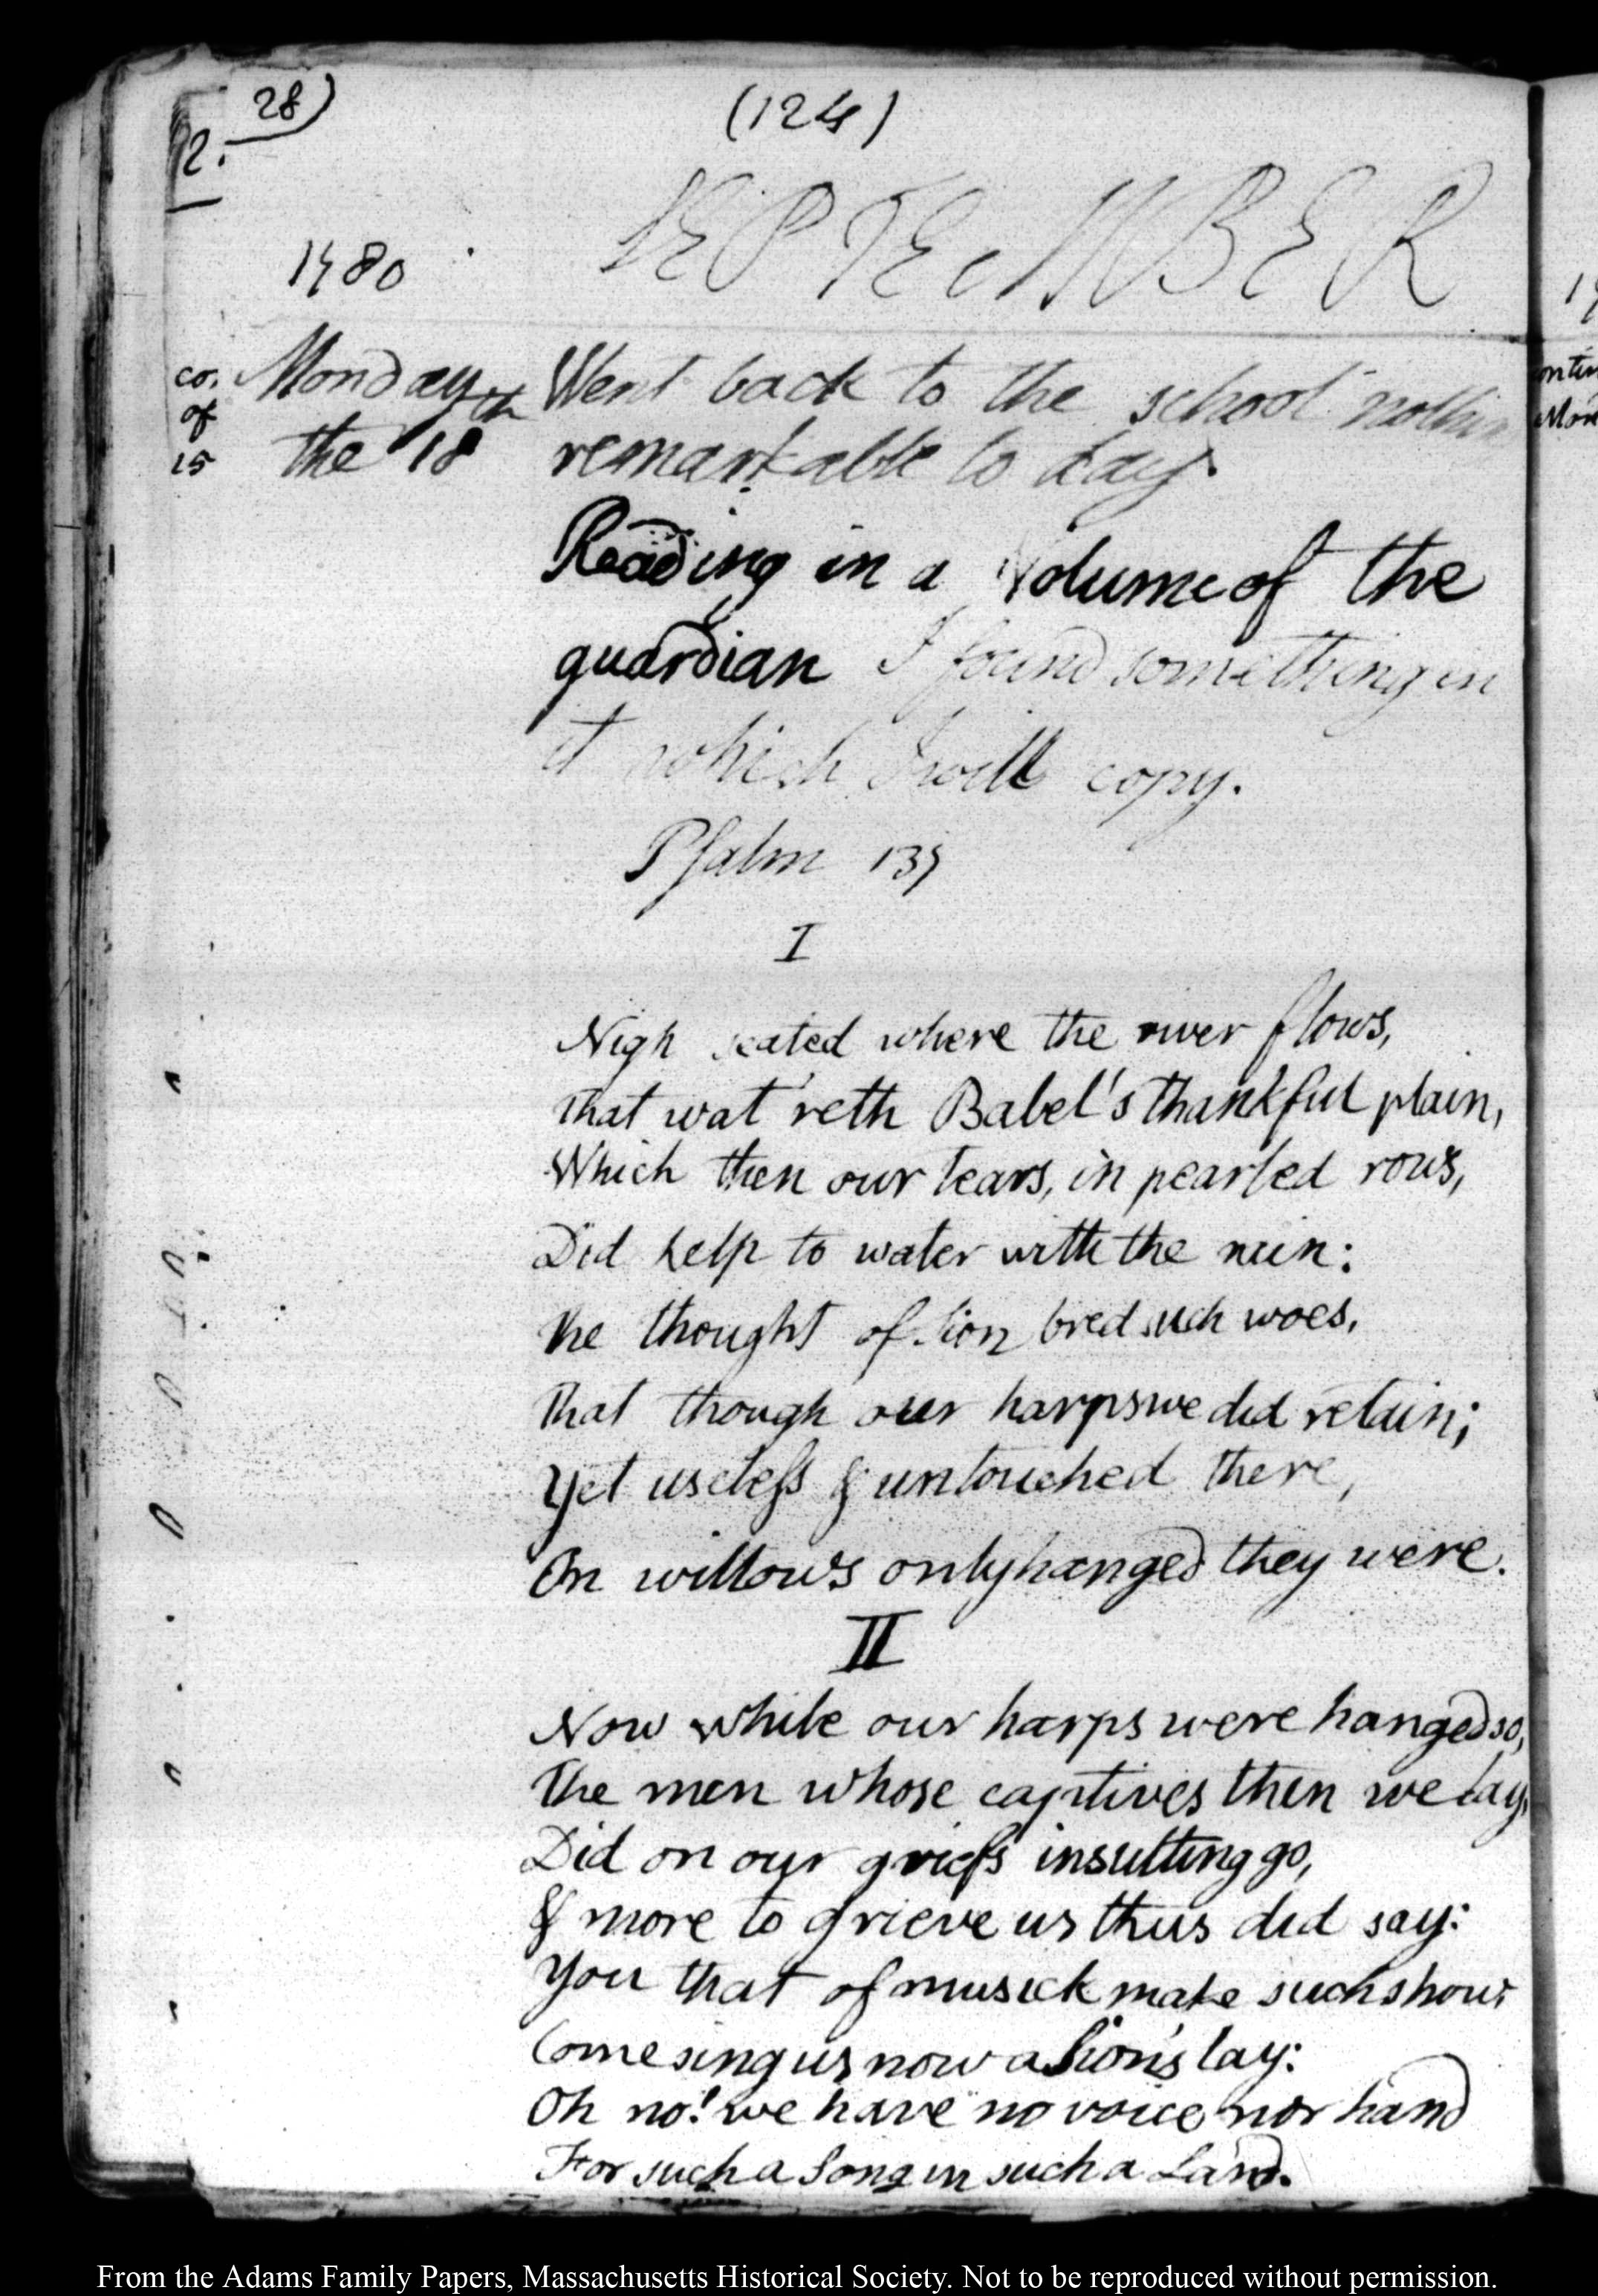 28)
2.
(124)
SEPTEMBER
1780
co. Monday Went back to the school nothin
of th
15 the 18 remarkable to day.
Reading in a Volume of the
guardian I found something in
it which I will copy.
Psalm 137
I
Nigh seated where the river flows,
That wat'reth Babel's thankful plain,
Which then our tears, in pearled rows,
Did help to water with the rain:
The thought of Sion bred such woes,
That though our harps we did retain;
Yet useless & untouched there,
On willows only hanged they were.
II
Now while our harps were hanged so,
The men whose captives then we lay,
Did on our griefs insulting go,
& more to grieve us thus did say:
You that of musick make such show,
Come sing us now a Sion's lay:
Oh no! we have no voice nor hand
For such a Song in such a Land.
From the Adams Family Papers, Massachusetts Historical Society. Not to be reproduced without permission.